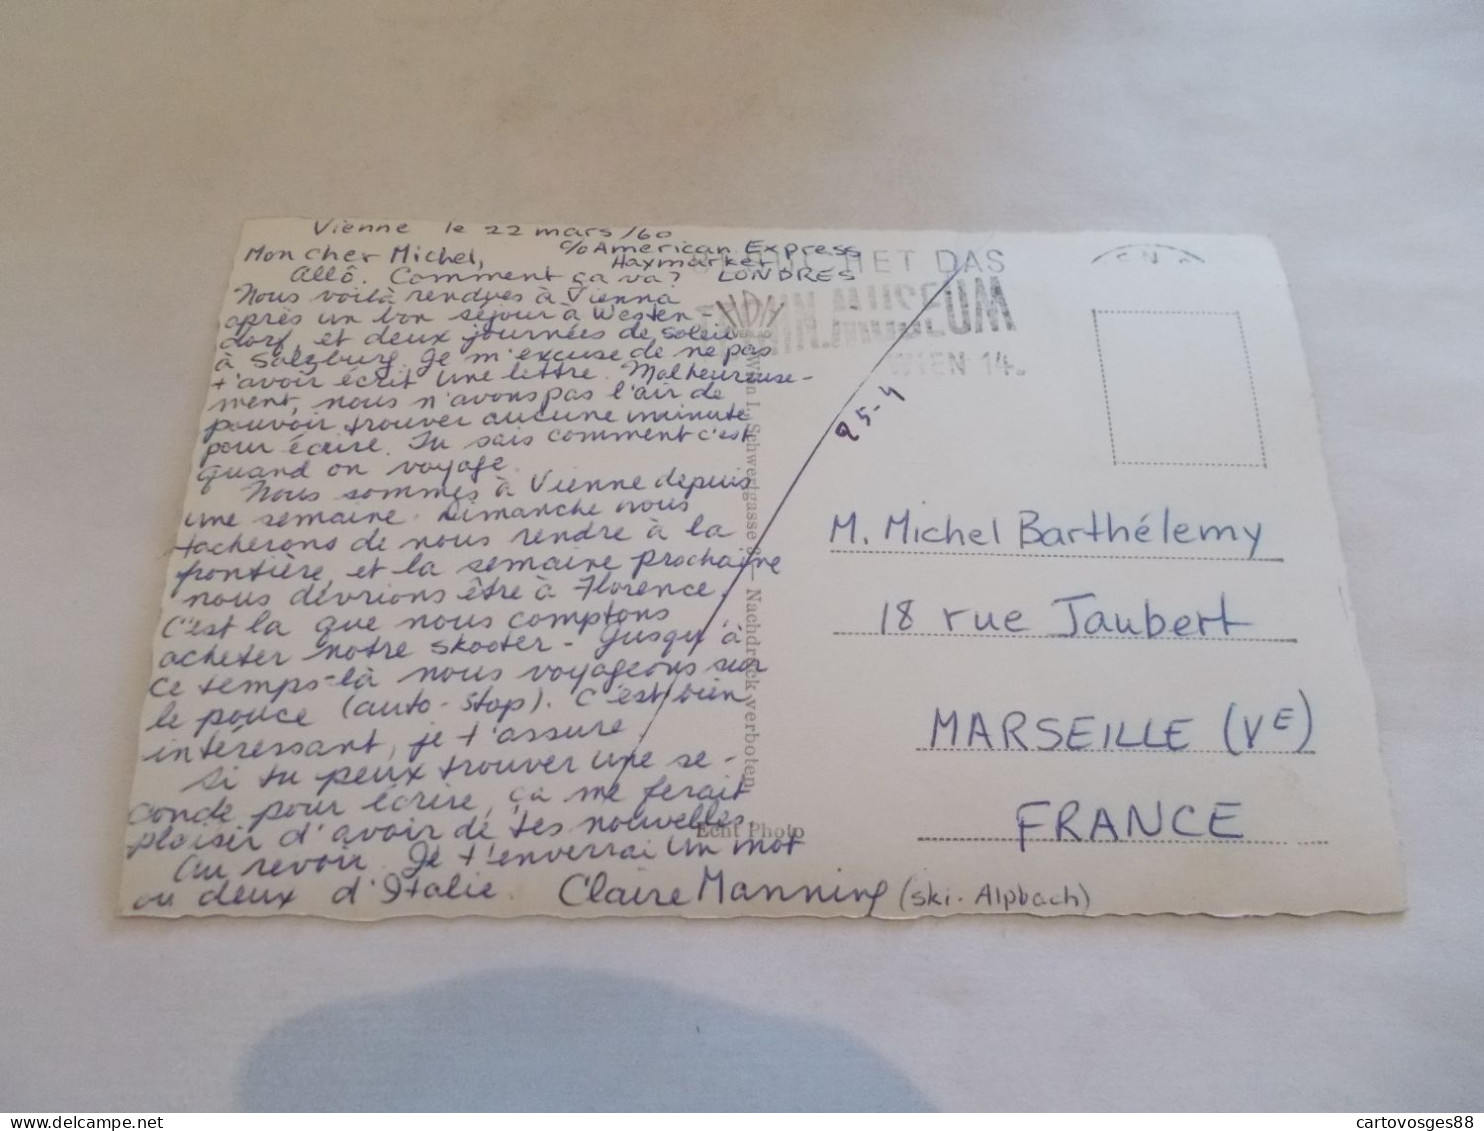 Vienne le 22 mars/60
Mon cher Michel, c/o American Express
Haymarket
Allô. Comment ça va? LONDRES
Nous voilà rendues à Vienna
après un bon séjour à Westen-
dorf, et deux journées de soleil
à Salzburg. Je m'excuse de ne pas
t'avoir écrit une lettre. Malheureuse-
ment, nous n'avons pas l'air de
pouvoir trouver aucune minute
pour écrire. Tu sais comment c'est
quand on voyage.
Nous sommes à Vienne depuis
une semaine. Dimanche nous
tacherons de nous rendre à la
frontière, et la semaine prochaine
nous devrions être à Florence.
C'est la que nous comptons
acheter notre skooter - Jusqu'à
ce temps-là nous voyageons sur
le pouce (auto-stop). C'est bien
intéressant, je t'assure.
Si tu peux trouver une se-
conde pour écrire, ça me ferait
plaisir d'avoir de tes nouvelles.
Au revoir. Je t'enverrai un mot
ou deux d'Italie. Claire Manning (ski. Alpbach)
DAS
MUSEUM
WIEN 14.
25-4
Wien I., Schwertgasse — Nachdruck verboten
Echt Photo
M. Michel Barthélemy
18 rue Jaubert
MARSEILLE (VE)
FRANCE
delcampe.net
cartovosges88